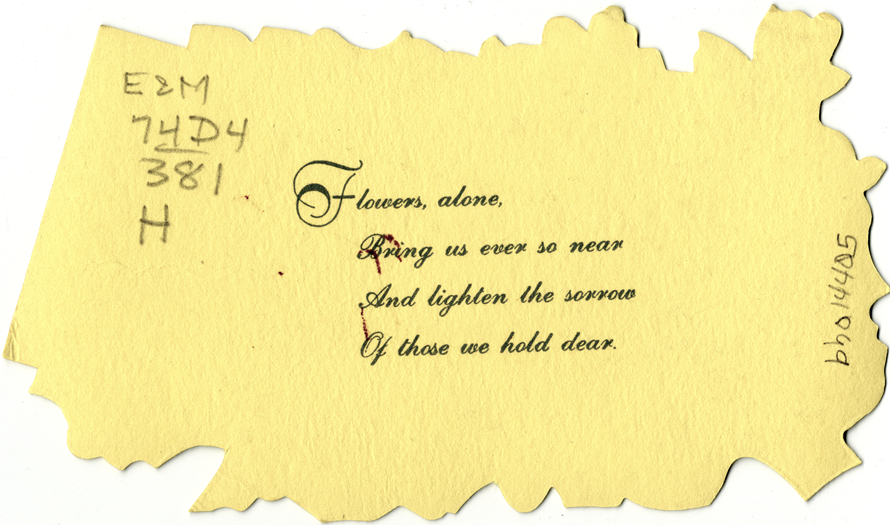 E&M
74D4
381
H
Flowers, alone,
Bring us ever so near
And lighten the sorrow
Of those we hold dear.
bho14405